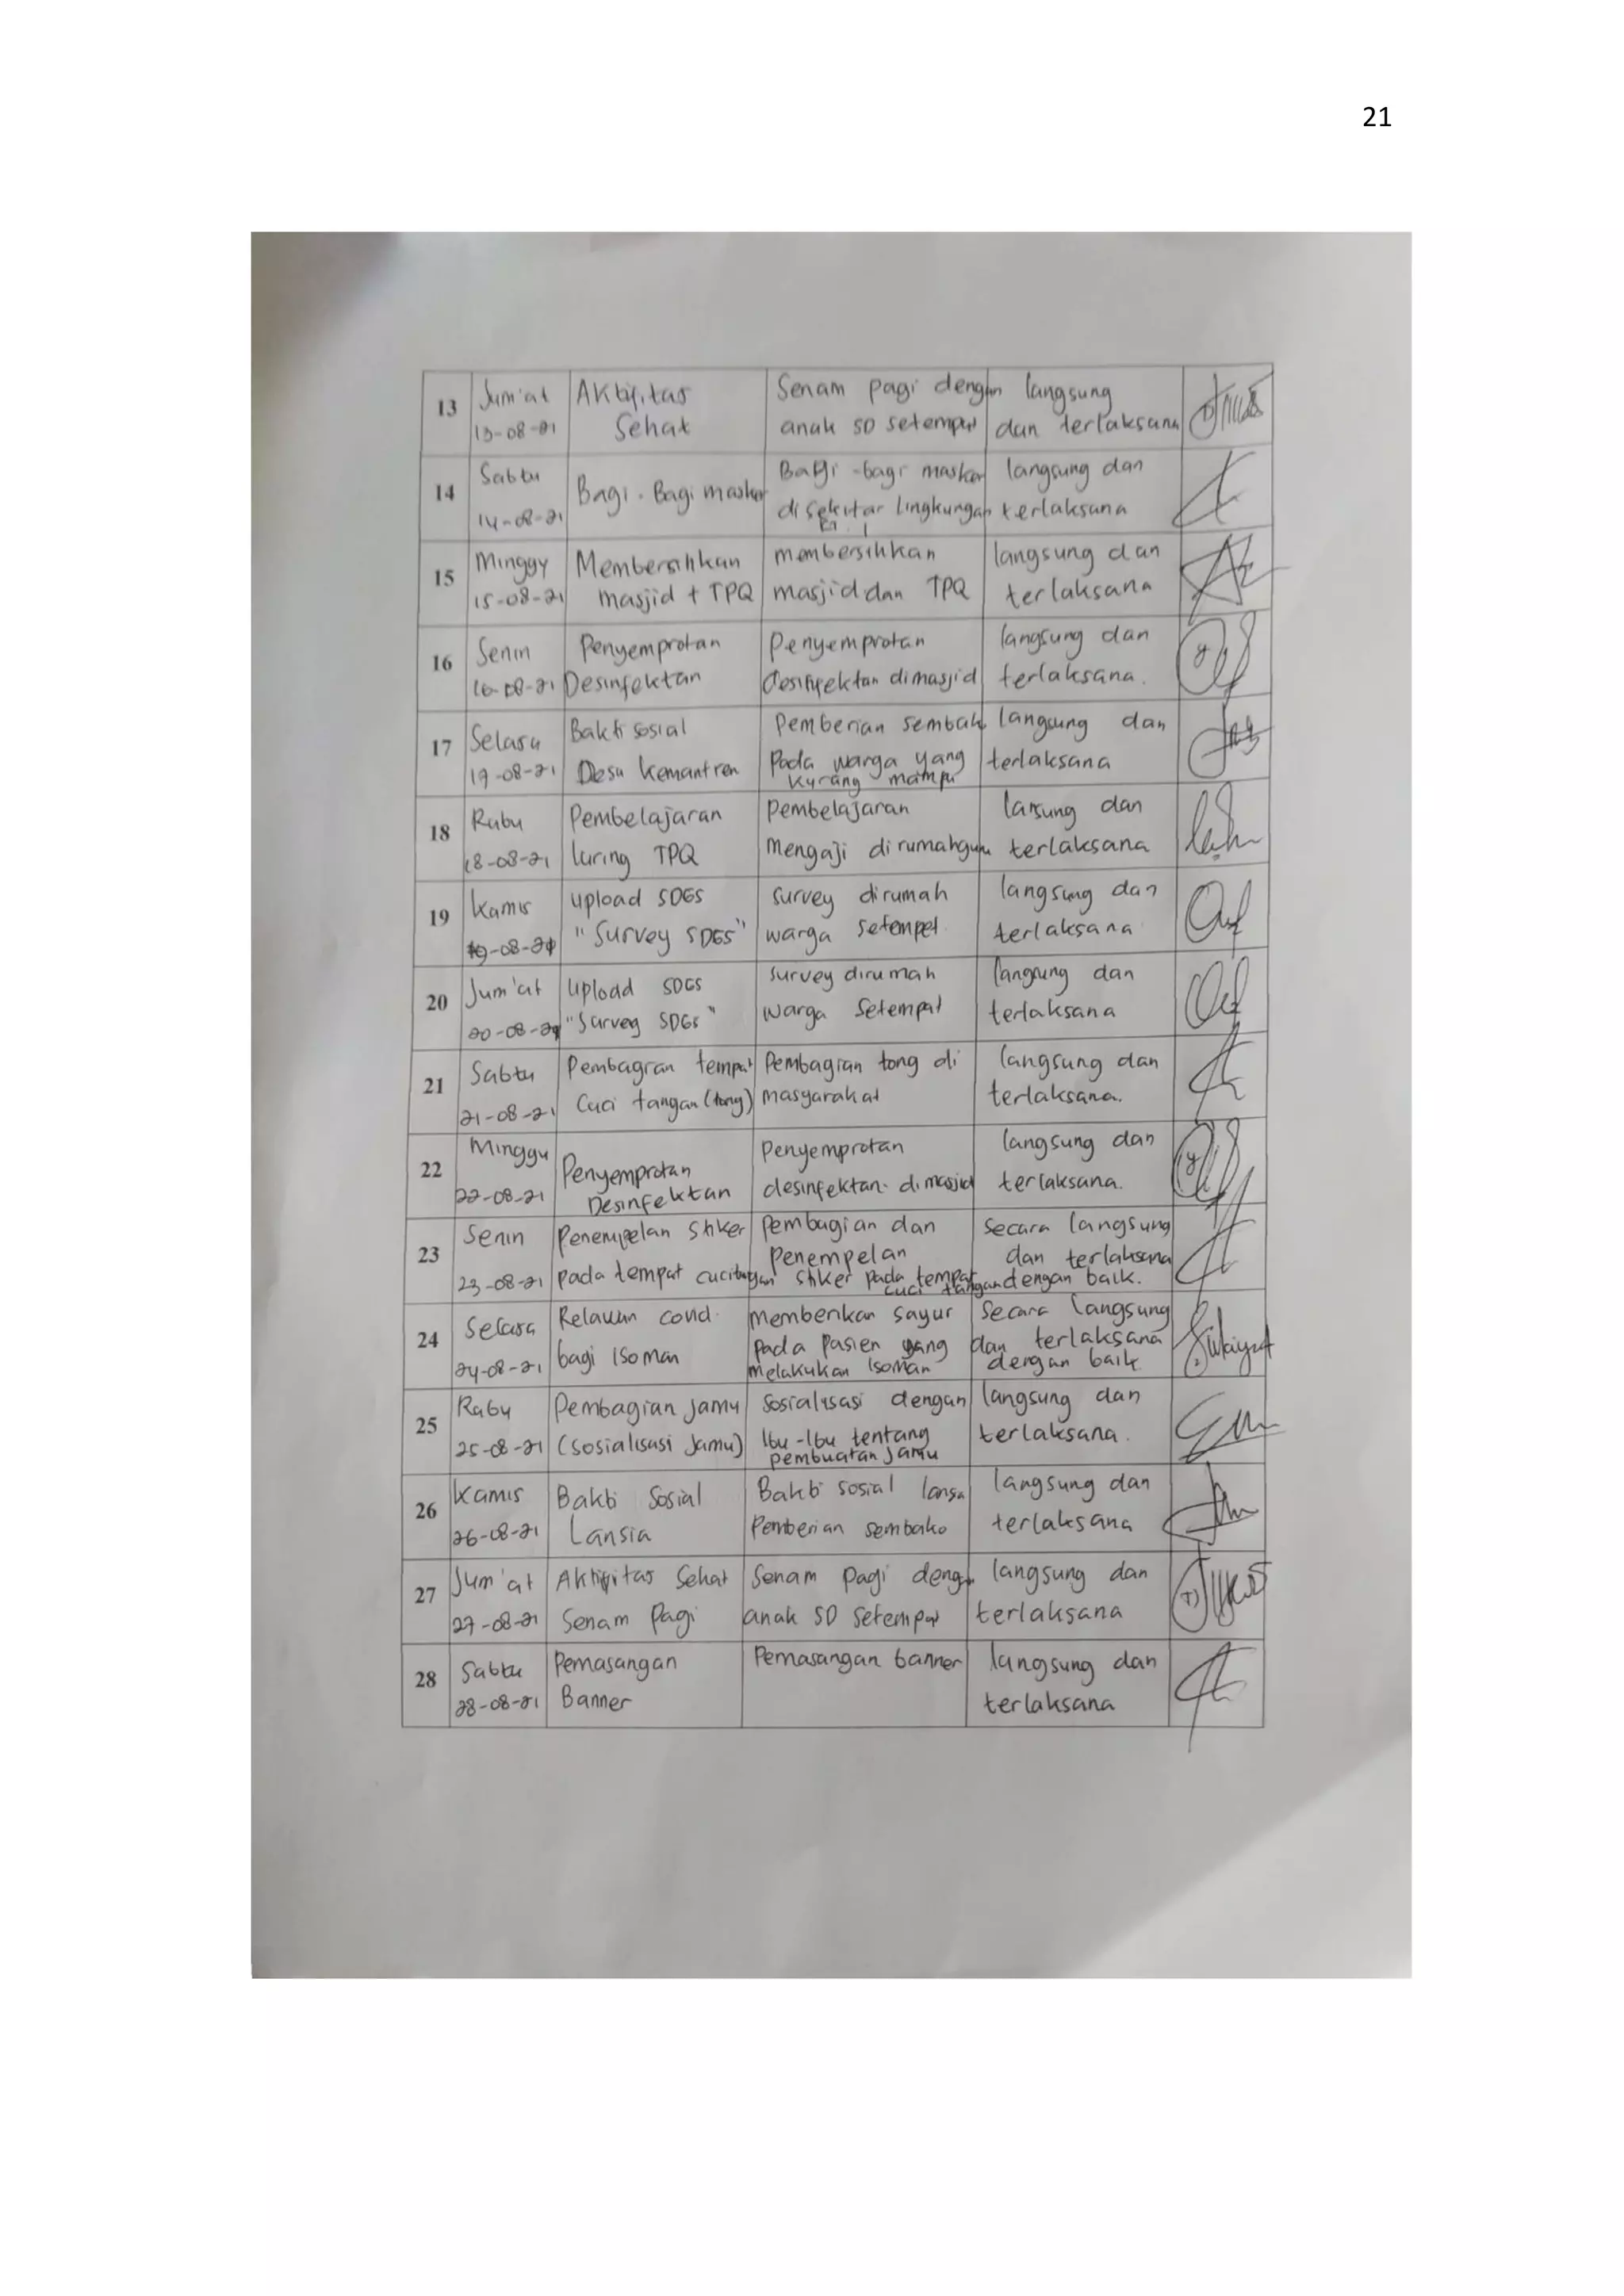 21
13 Jum'at Aktifitas Senam pagi dengan langsung
13-08-21 Sehat anak SD setempat dan terlaksana
14 Sabtu Bagi-Bagi masker Bagi-bagi masker langsung dan
14-08-21 disekitar lingkungan terlaksana
15 Minggu Membersihkan membersihkan langsung dan
15-08-21 masjid + TPQ masjid dan TPQ terlaksana
16 Senin Penyemprotan Penyemprotan langsung dan
16-08-21 Desinfektan desinfektan dimasjid terlaksana.
17 Selasa Bakti sosial Pemberian sembako langsung dan
17-08-21 Desa Kemantren Pada warga yang terlaksana
kurang mampu
18 Rabu Pembelajaran Pembelajaran lansung dan
18-08-21 luring TPQ Mengaji dirumah guru terlaksana
19 Kamis upload SDGS survey dirumah langsung dan
19-08-21 "Survey SDGS" warga setempat terlaksana
20 Jum'at Upload SDGS survey dirumah langsung dan
20-08-21 "Survey SDGs" warga setempat terlaksana
21 Sabtu Pembagian tempat Pembagian tong di langsung dan
21-08-21 Cuci tangan (tong) masyarakat terlaksana.
22 Minggu Penyemprotan Penyemprotan langsung dan
22-08-21 Desinfektan desinfektan dimasjid terlaksana.
23 Senin Penempelan Stiker Pembagian dan Secara langsung
Penempelan dan terlaksana
23-08-21 pada tempat cuci tangan stiker pada tempat dengan baik.
cuci tangan
24 Selasa Relawan covid memberikan sayur Secara langsung
24-08-21 bagi Isoman pada Pasien yang dan terlaksana
melakukan Isoman dengan baik
25 Rabu Pembagian Jamu Sosialisasi dengan langsung dan
25-08-21 (Sosialisasi Jamu) Ibu-Ibu tentang terlaksana.
pembuatan Jamu
26 Kamis Bakti Sosial Bakti sosial lansia langsung dan
26-08-21 Lansia Pemberian sembako terlaksana
27 Jum'at Aktifitas Sehat Senam Pagi dengan langsung dan
27-08-21 Senam Pagi anak SD setempat terlaksana
28 Sabtu Pemasangan Pemasangan banner langsung dan
28-08-21 Banner terlaksana